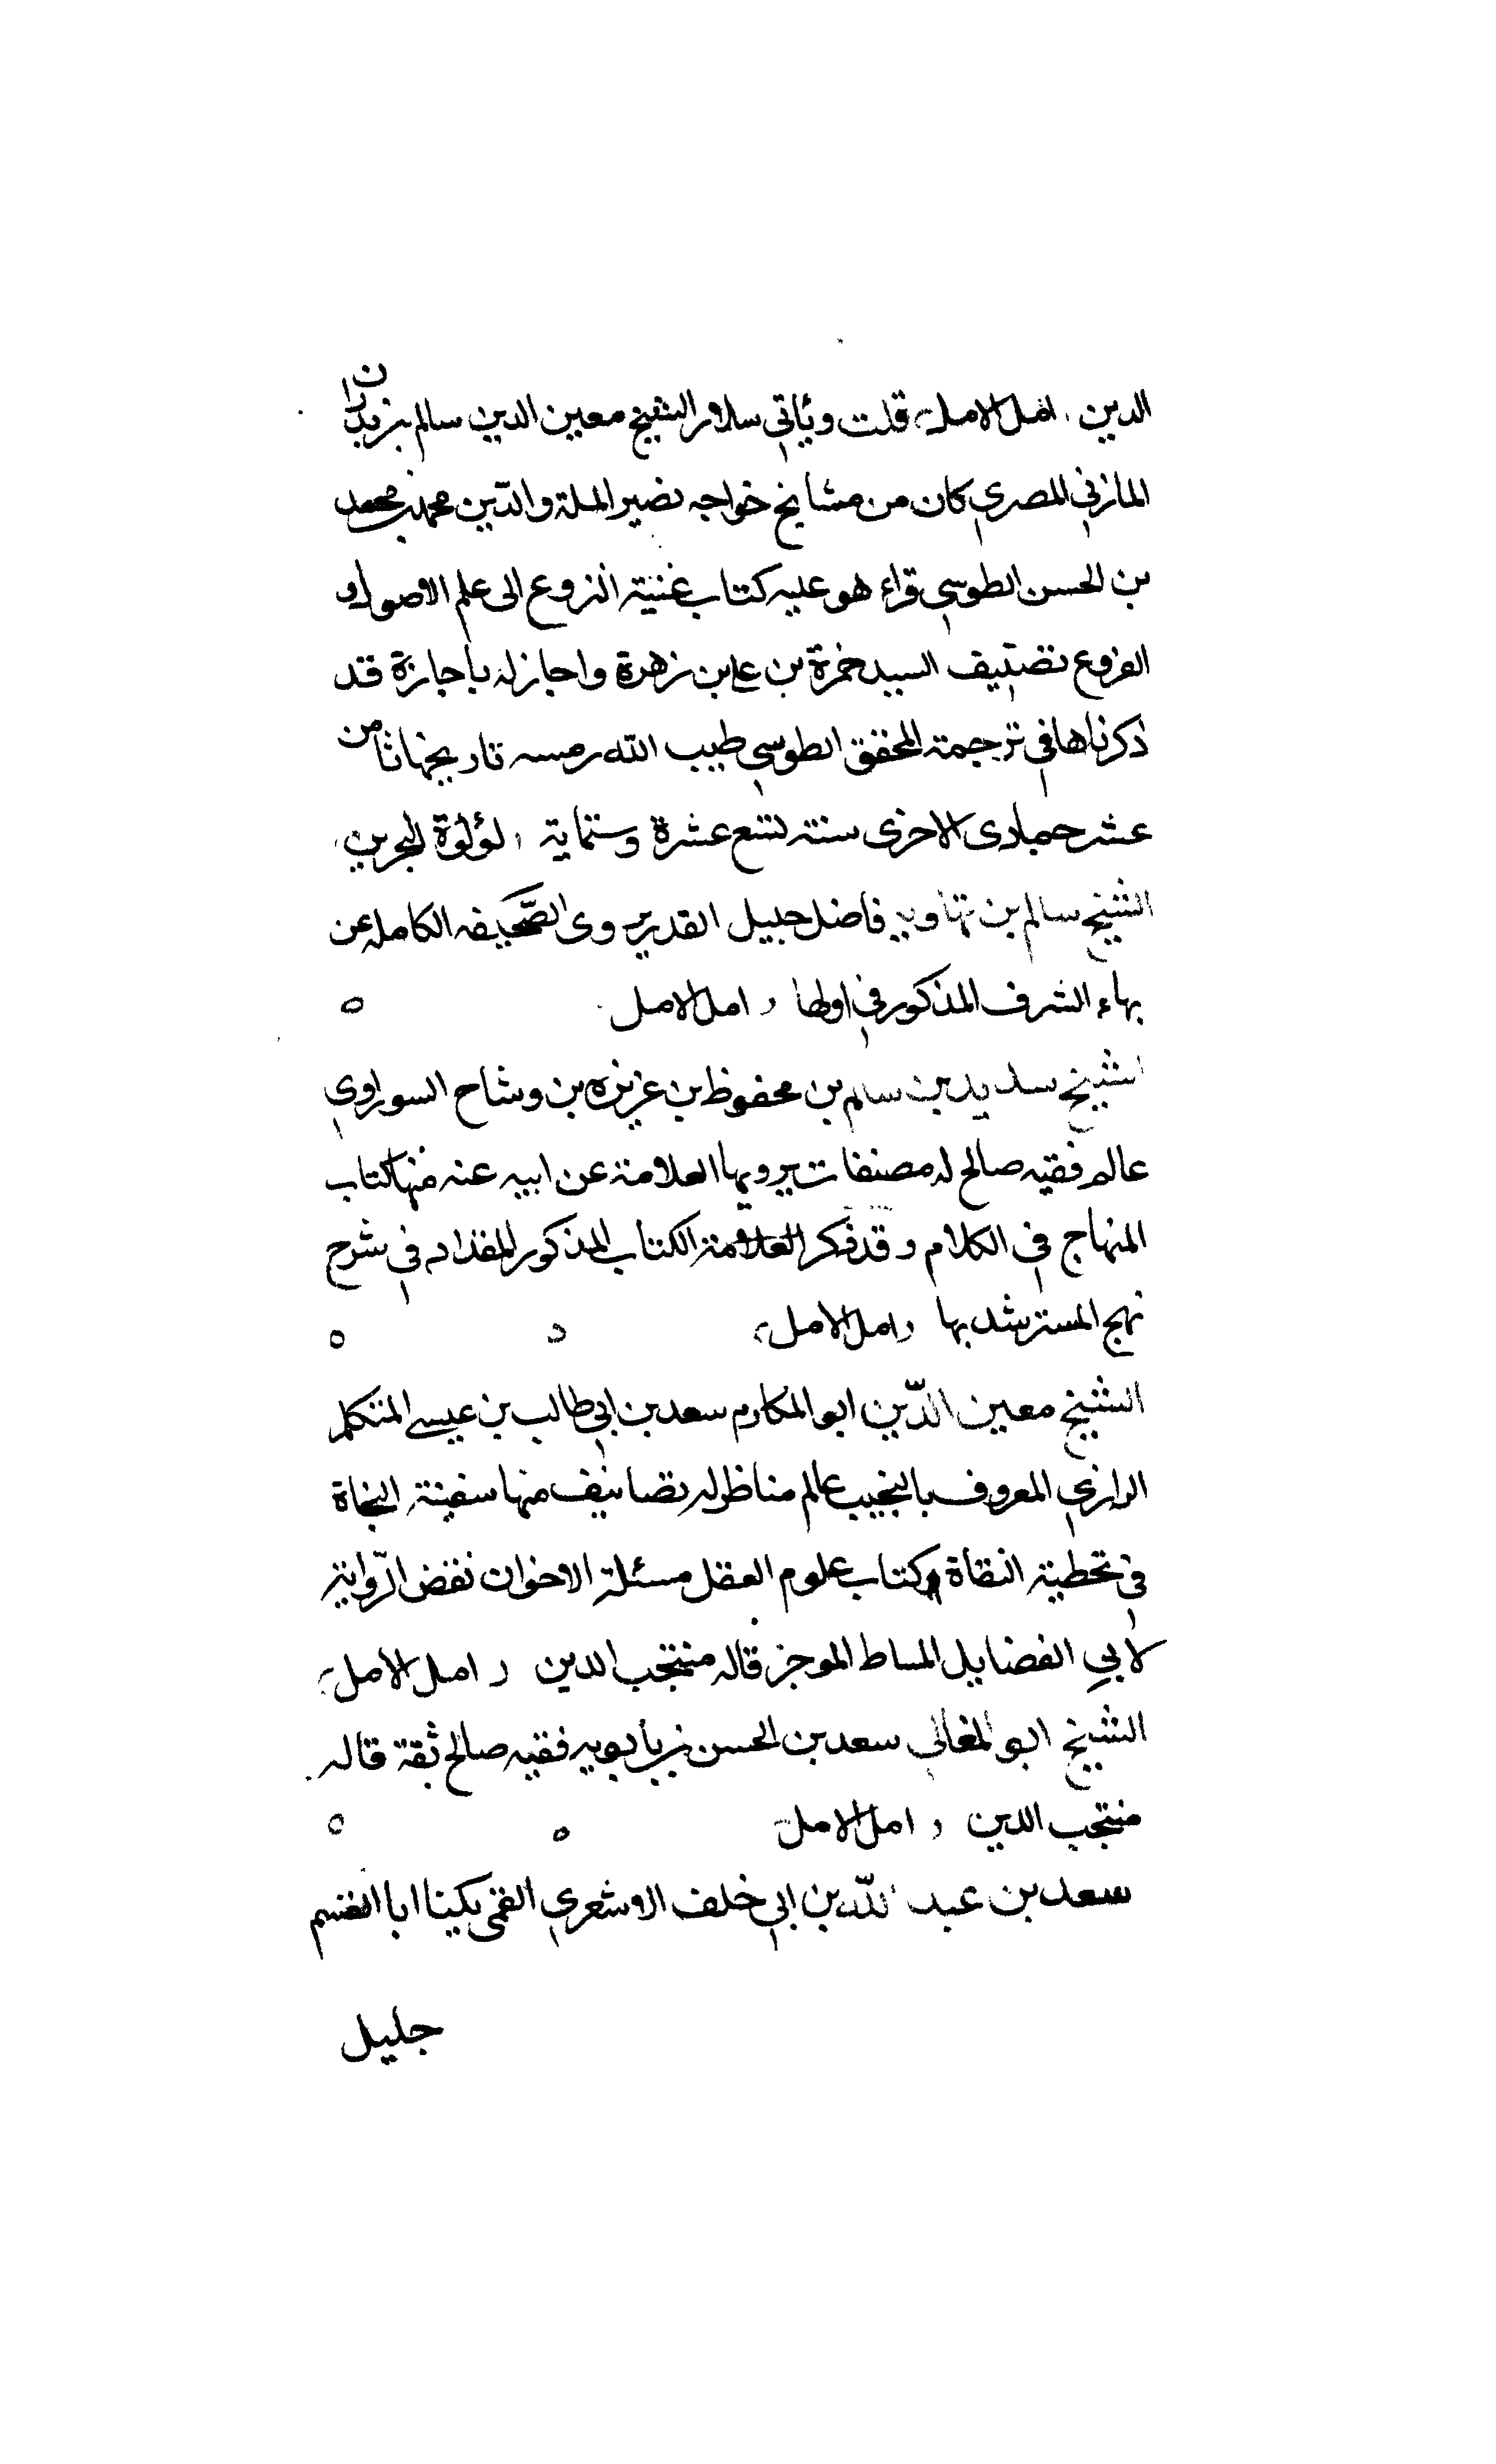 الدين امل الامل قلت وياتي سلار الشيخ معين الدين سالم بن بدران
المازني المصري كان من مشايخ خواجه نصير الملة والدّين محمد بن محمد
بن الحسن الطوسي قراء هو عليه كتاب غنية النزوع الى علم الاصول و
الفروع تصنيف السيد حمزة بن علي بن زهرة واجاز له باجازة قد
ذكرناها في ترجمة المحقق الطوسي طيب الله رمسه تاريخها ثامن
عشر جمادى الاخرى سنة تسع عشرة وستماية لؤلؤة البحرين
الشيخ سالم بن قباويه فاضل جليل القدر يروى الصّحيفه الكامله عن
بهاء الشرف المذكور في اولها امل الامل
الشيخ سديد بن سالم بن محفوظ بن عزيزه بن وشاح السوراوي
عالم فقيه صالح له مصنفات يرويها العلامة عن ابيه عنه منها كتاب
المنهاج في الكلام وقد ذكر العلامة الكتاب المذكور المقداد في شرح
نهج المسترشد بها امل الامل
الشيخ معين الدّين ابو المكارم سعد بن ابي طالب بن عيسى المتكلم
الرازي المعروف بالنجيب عالم مناظر له تصانيف منها سفينة النجاة
في تخطية النقاة وكتاب علوم العقل مسئلة الاخوان نقض الرّواية
لابي الفضايل المساط الموجز قاله منتجب الدين امل الامل
الشيخ ابو المعالي سعد بن الحسن بن بابويه فقيه صالح ثقة قاله
منتجب الدين امل الامل
سعد بن عبد الله بن ابي خلف الاشعري القمي يكنا ابا القسم
جليل